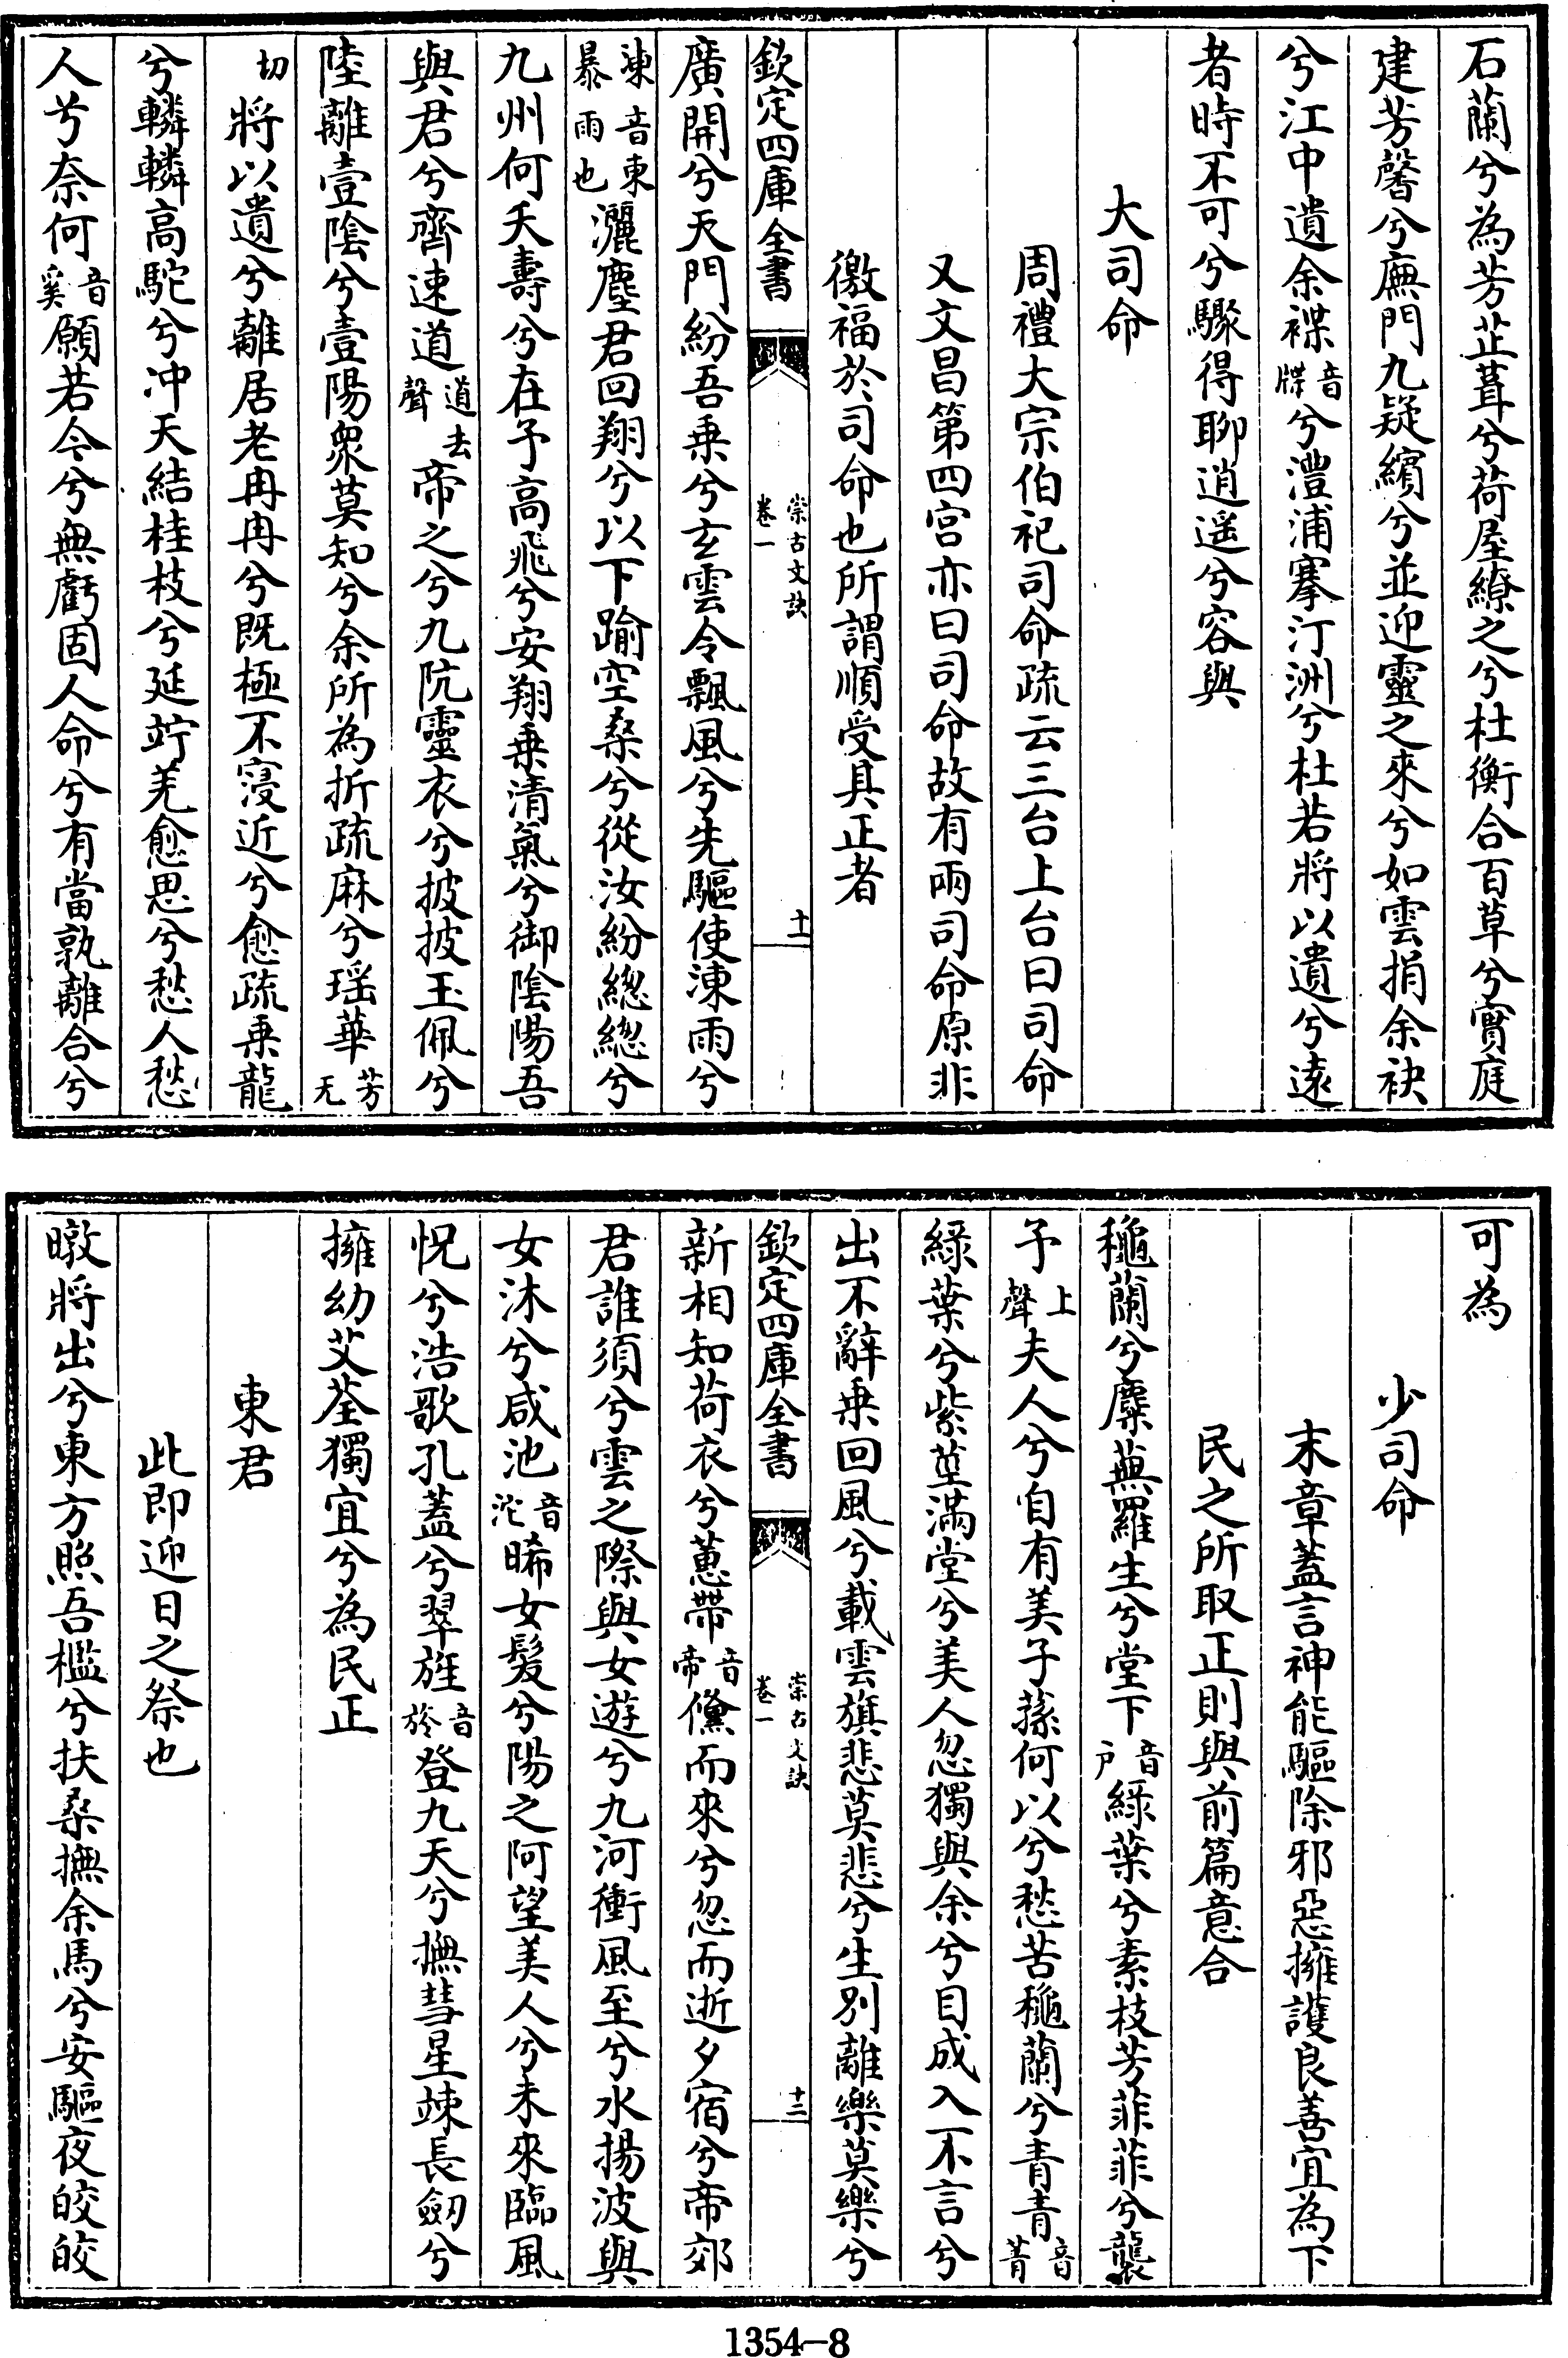 石蘭兮為芳芷葺兮荷屋繚之兮杜衡合百草兮實庭
建芳馨兮廡門九疑繽兮並迎靈之來兮如雲捐余袂
兮江中遺余褋音牒兮澧浦搴汀洲兮杜若將以遺兮遠
者時不可兮驟得聊逍遥兮容與
大司命
周禮大宗伯祀司命疏云三台上台曰司命
又文昌第四宫亦曰司命故有兩司命原非
徼福於司命也所謂順受其正者
欽定四庫全書 崇古文訣 卷一 十一
廣開兮天門紛吾乗兮玄雲令飄風兮先驅使涷雨兮
涷音東暴雨也灑塵君回翔兮以下踰空桑兮從汝紛總總兮
九州何夭壽兮在予高飛兮安翔乗清氣兮御陰陽吾
與君兮齊速道道去聲帝之兮九阬靈衣兮披披玉佩兮
陸離壹陰兮壹陽衆莫知兮余所為折疏麻兮瑶華芳无
切將以遺兮離居老冉冉兮既極不寖近兮愈疏乗龍
兮轔轔高駝兮冲天結桂枝兮延竚羌愈思兮愁人愁
人兮奈何音奚願若今兮無虧固人命兮有當孰離合兮
可為
少司命
末章蓋言神能驅除邪惡擁護良善宜為下
民之所取正則與前篇意合
穐蘭兮麋蕪羅生兮堂下音户綠葉兮素枝芳菲菲兮襲
予上聲夫人兮自有美子蓀何以兮愁苦穐蘭兮青青音菁
綠葉兮紫莖滿堂兮美人忽獨與余兮目成入不言兮
出不辭乗回風兮載雲旗悲莫悲兮生别離樂莫樂兮
欽定四庫全書 崇古文訣 卷一 十二
新相知荷衣兮蕙帶音帝儻而來兮忽而逝夕宿兮帝郊
君誰須兮雲之際與女遊兮九河衝風至兮水揚波與
女沐兮咸池音沱晞女髮兮陽之阿望美人兮未來臨風
怳兮浩歌孔蓋兮翠旌音旍登九天兮撫彗星竦長劔兮
擁幼艾荃獨宜兮為民正
東君
此即迎日之祭也
暾將出兮東方照吾檻兮扶桑撫余馬兮安驅夜皎皎
1354-8